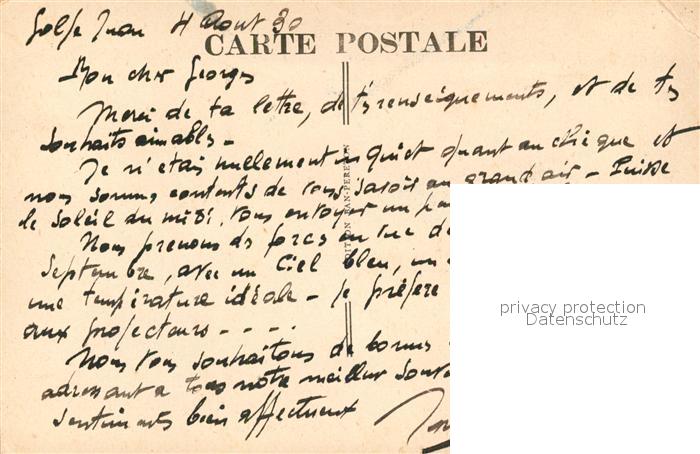 Golfe Juan 4 Aout 30
CARTE POSTALE
Mon cher Georges
Merci de ta lettre, de tes renseignements, et de tes
souhaits aimables -
Je n'etais nullement inquiet quant au chèque et
nous sommes contents de vous savoir au grand air - Puisse
le soleil du midi, vous envoyer un
Nous prenons des forces en vue de
Septembre, avec un Ciel bleu, un
une température idéale - je préfère
aux projecteurs - - - -
Nous vous souhaitons de bonnes
adressant a tous notre meilleur
sentiments bien affectueux
EDITION JEAN-PEREYON
privacy protection
Datenschutz